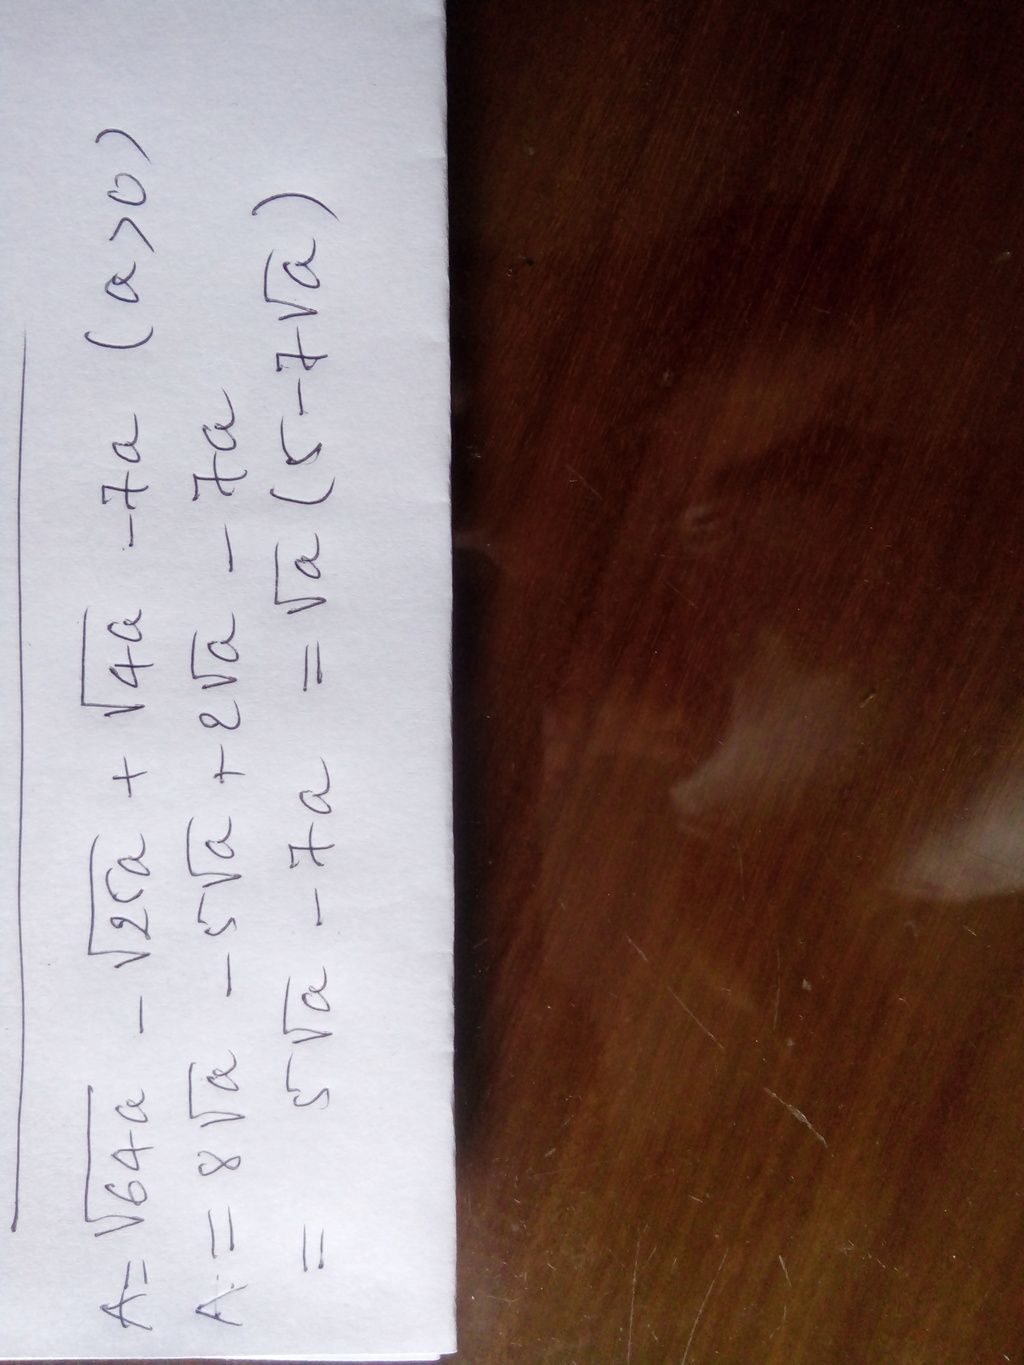 A = √64a - √25a + √4a - 7a (a>0)
A = 8√a - 5√a + 2√a - 7a
= 5√a - 7a = √a (5 - 7√a)